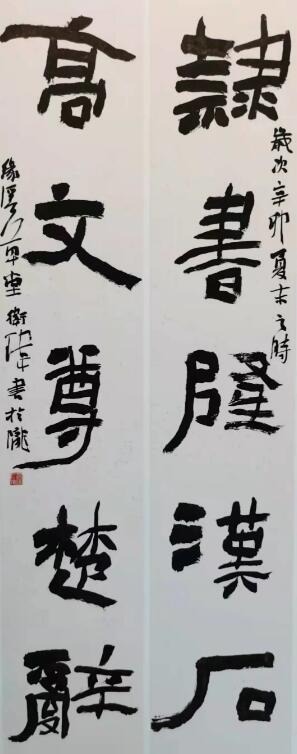 隸書隆漢石
歲次辛卯夏末之時
高文尊楚辭
書於隴